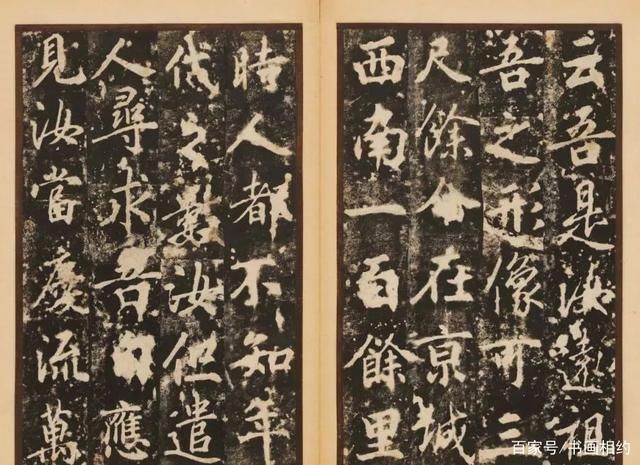 云吾是汝遠祖
吾之形像可三
尺餘今在京城
西南一百餘里
時人都不知年
代之數汝但遣
人尋求吾自應
見汝當慶流萬
百家号/书画相约